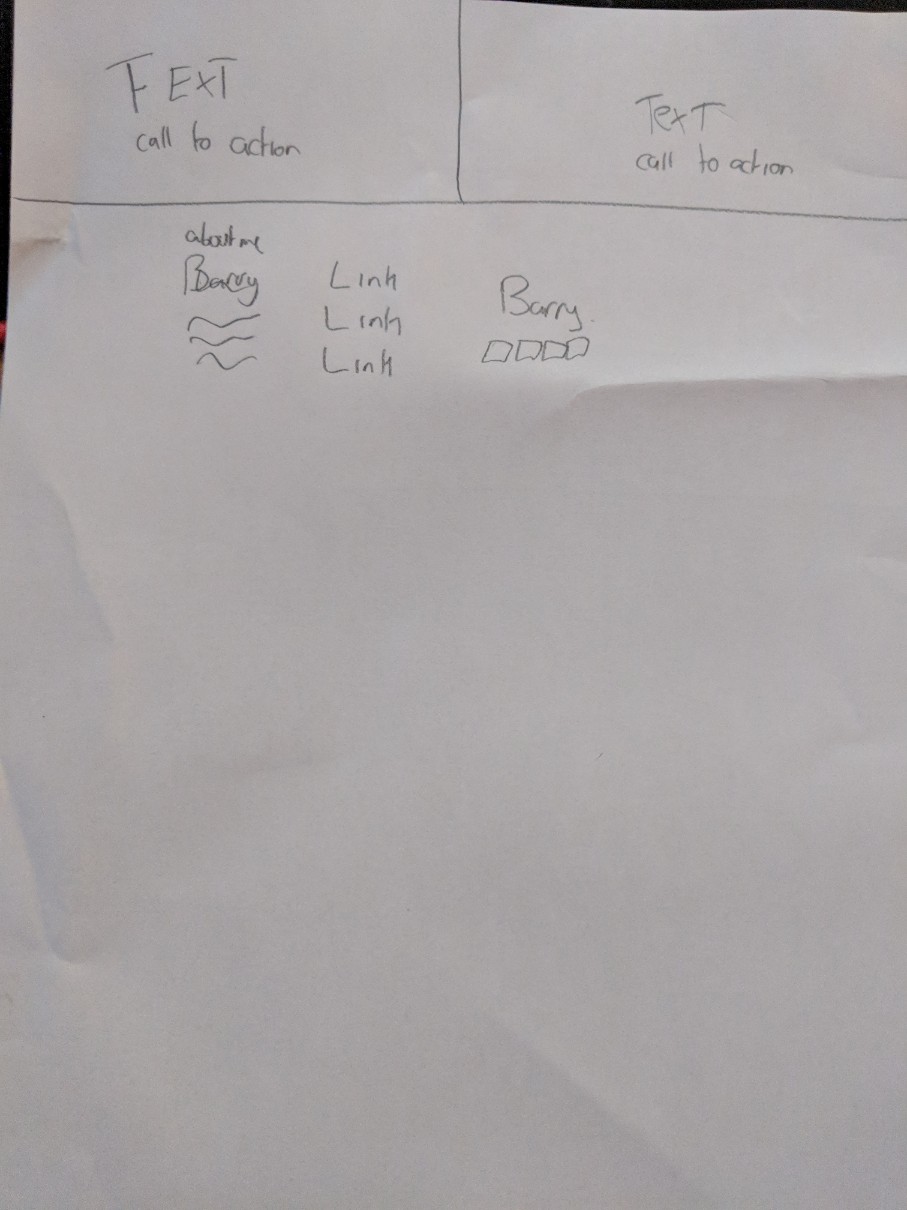 TEXT
call to action
Text
call to action
about me
Barry
Link
Link
Link
Barry.